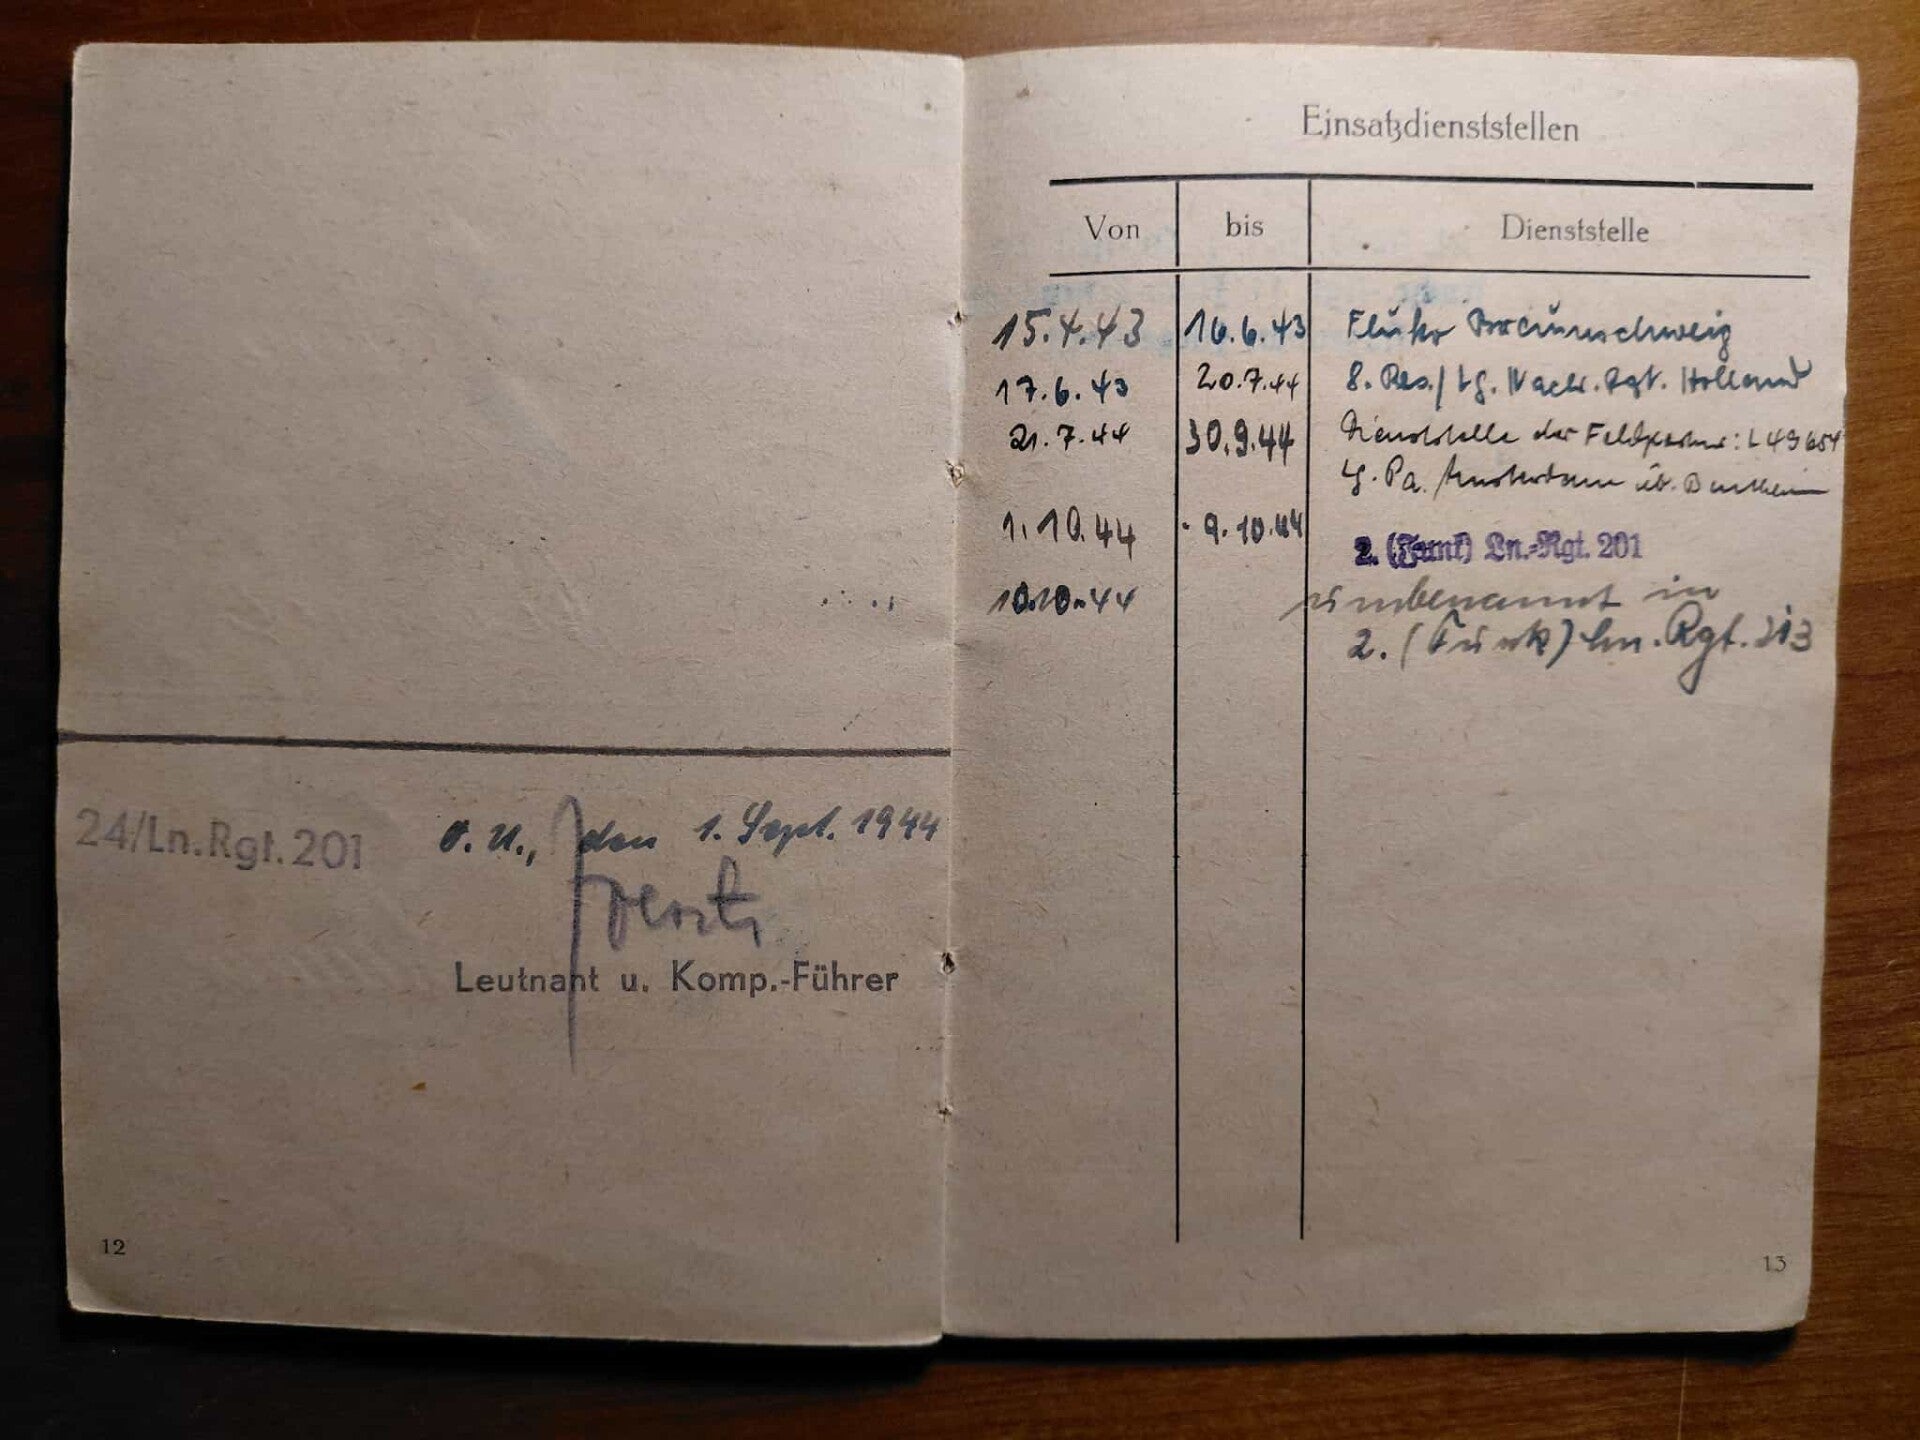 24/Ln.Rgt.201
O.U., den 1. Sept. 1944
Leutnant u. Komp.-Führer
12
Einsatzdienststellen
Von bis Dienststelle
15.4.43 16.6.43 Fluko Braunschweig
17.6.43 20.7.44 8. Res./Lg. Nachr. Rgt. Holland
21.7.44 30.9.44 Dienststelle der Feldpostnr: L 49654
Lg. Pa. Amsterdam üb. Bentheim
1.10.44 - 9.10.44 2. (Funk) Ln.-Rgt. 201
10.10.44 umbenannt in
2. (Funk) Ln. Rgt. 213
13